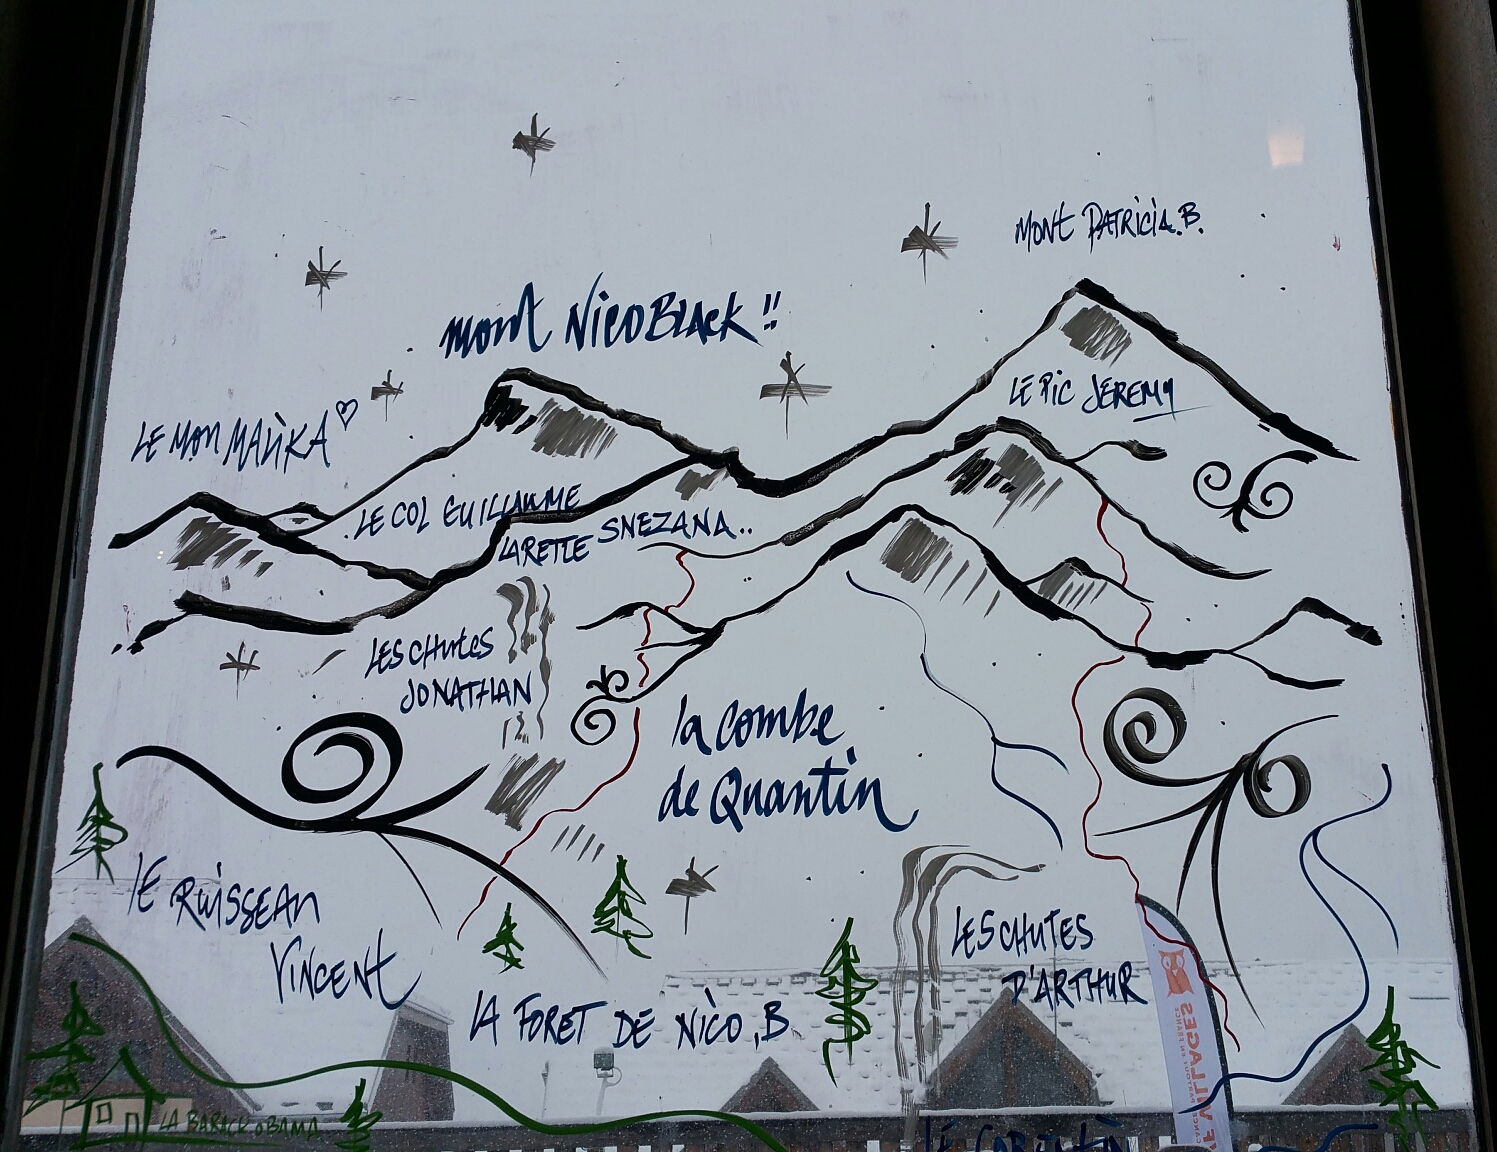 MONT PATRICIA.B.
MONT NICOBLACK !!
LE PIC JEREMY
LE MON MALIKA
LE COL GUILLAUME
LARETTE SNEZANA..
LES CHUTES
JONATHAN
la combe
de Quantin
LE RUISSEAU
VINCENT
LES CHUTES
D'ARTHUR
LA FORET DE NICO.B
LA BARACK OBAMA
VILLAGES